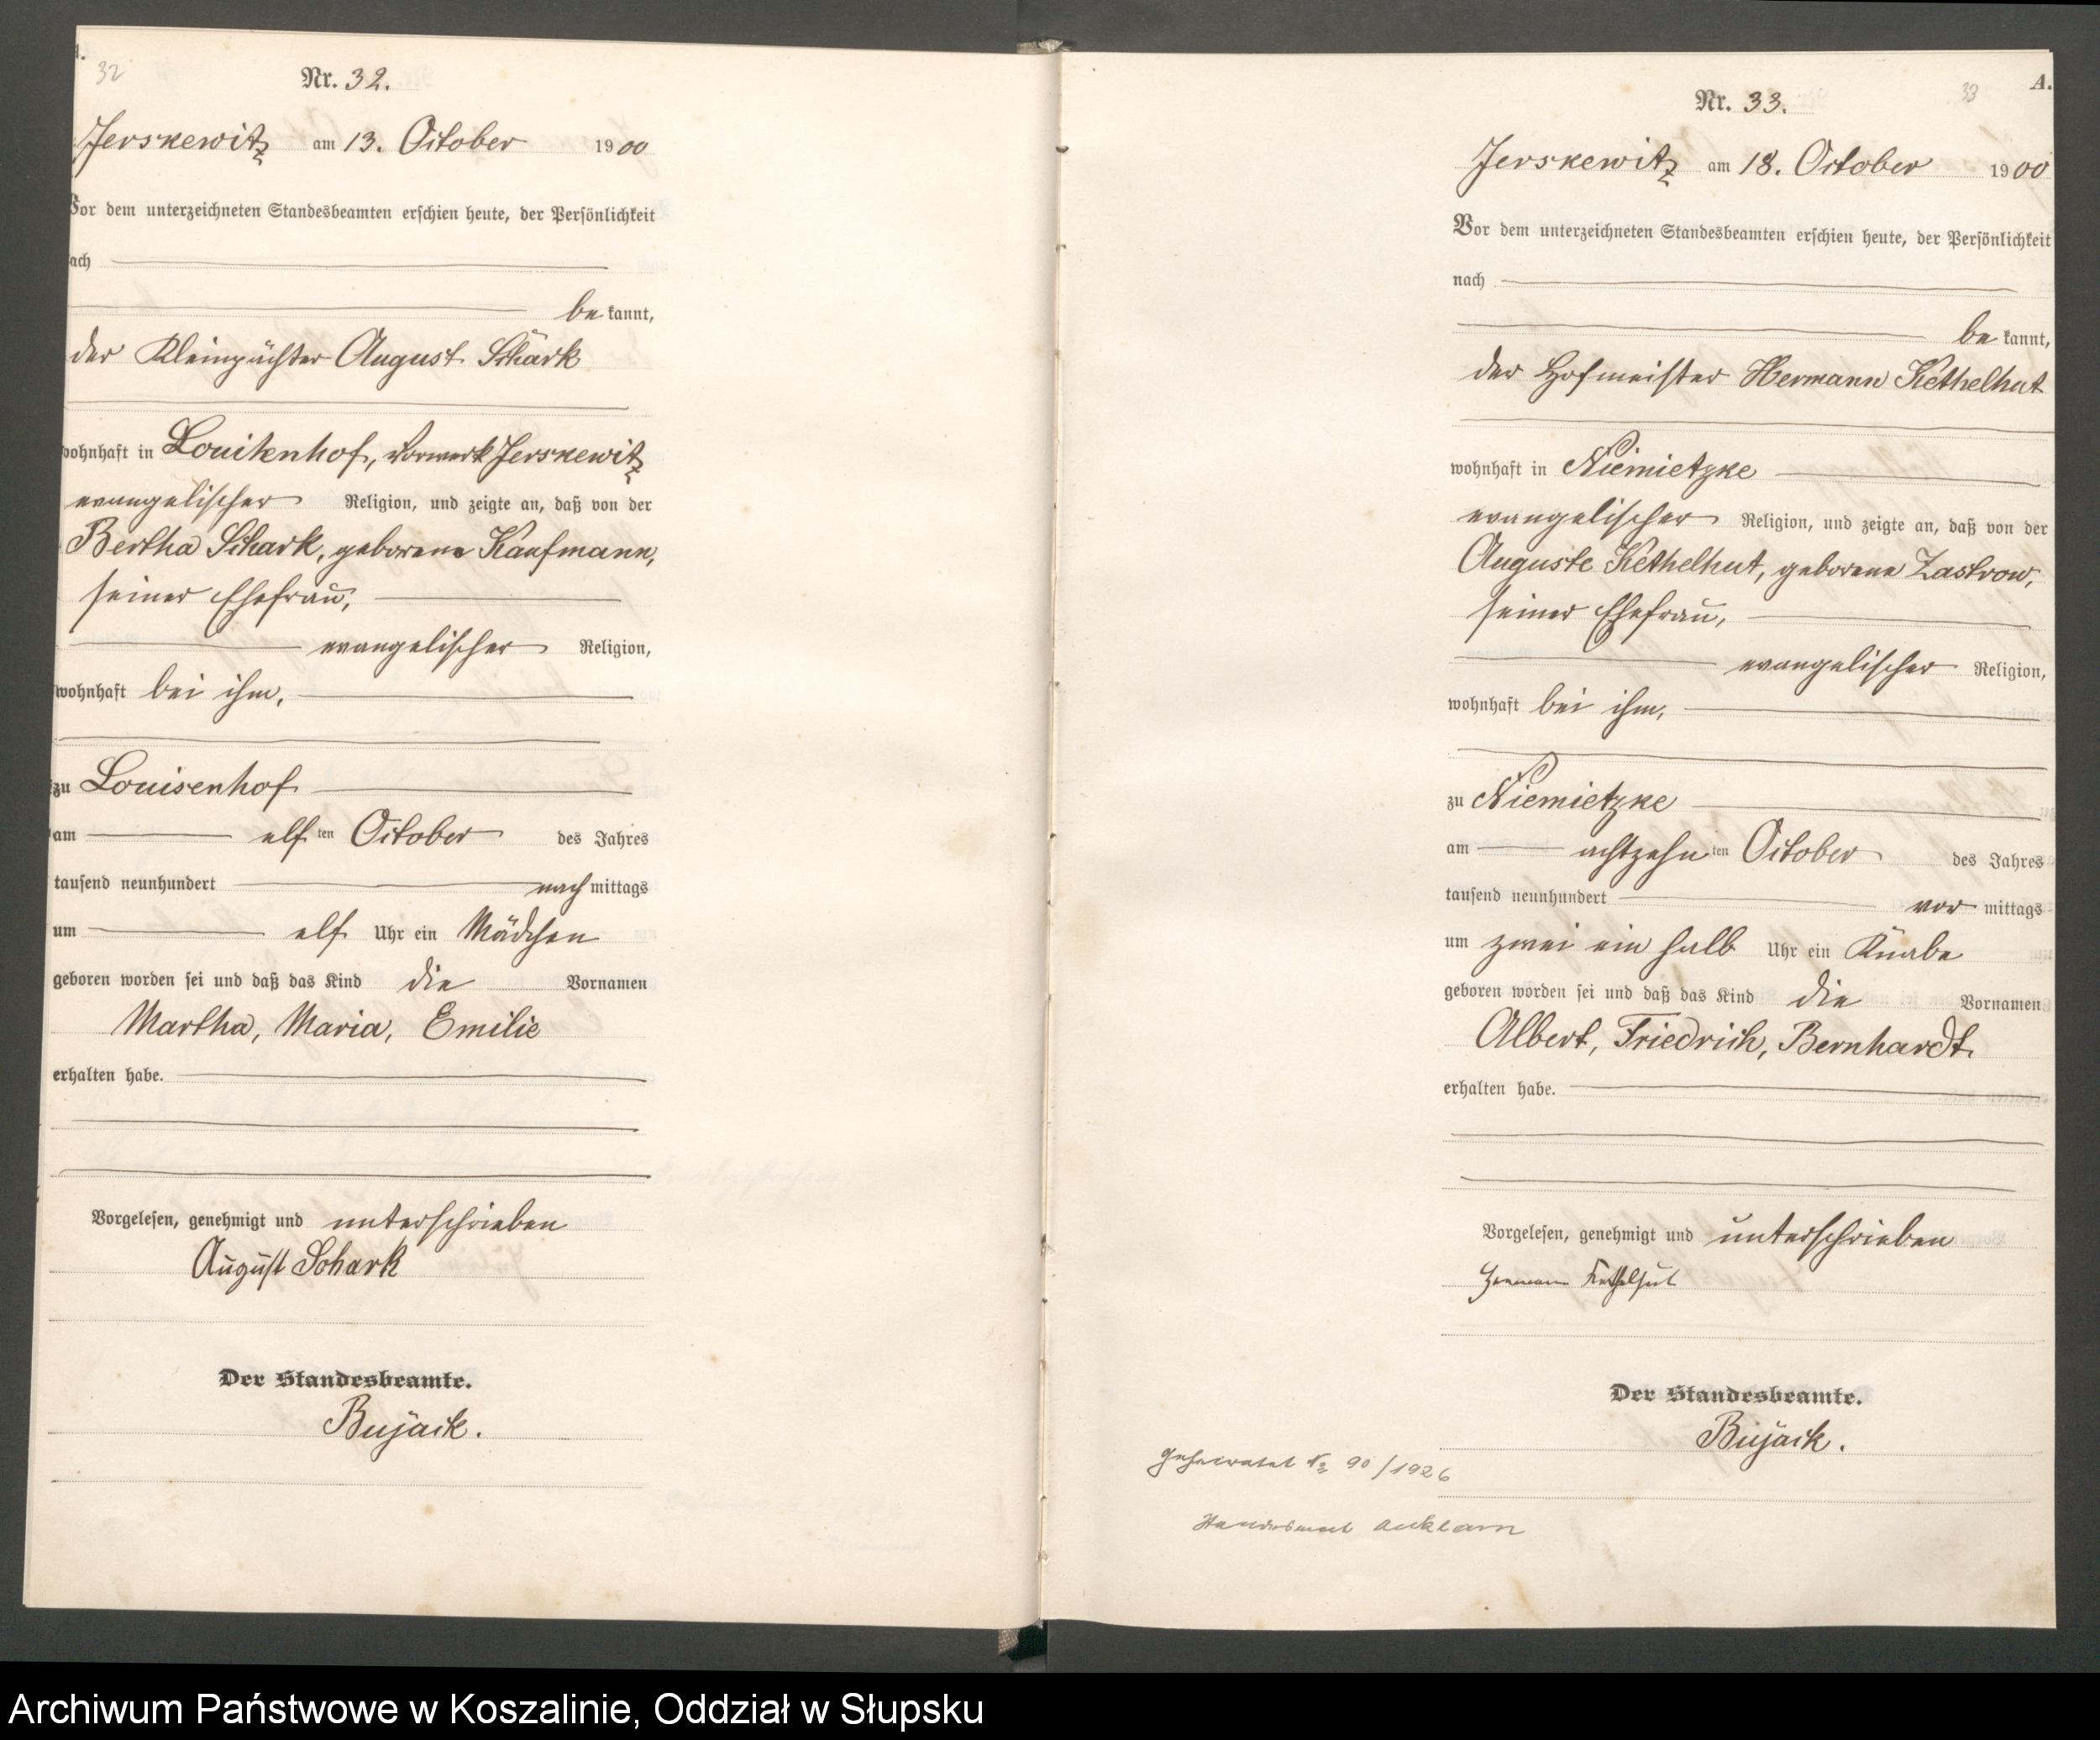 32
Nr. 32.
Jerskewitz am 13. October 1900
Vor dem unterzeichneten Standesbeamten erschien heute, der Persönlichkeit
nach
bekannt,
der Kleinpächter August Schark
wohnhaft in Louisenhof, Vorwerk Jerskewitz
evangelischer Religion, und zeigte an, daß von der
Bertha Schark, geborene Kaufmann,
seiner Ehefrau,
evangelischer Religion,
wohnhaft bei ihm,
zu Louisenhof
am elften October des Jahres
tausend neunhundert nachmittags
um elf Uhr ein Mädchen
geboren worden sei und daß das Kind die Vornamen
Martha, Maria, Emilie
erhalten habe.
Vorgelesen, genehmigt und unterschrieben
August Schark
Der Standesbeamte.
Bujack.
33 A.
Nr. 33.
Jerskewitz am 18. October 1900
Vor dem unterzeichneten Standesbeamten erschien heute, der Persönlichkeit
nach
bekannt,
der Hofmeister Hermann Kethelhut
wohnhaft in Niemietzke
evangelischer Religion, und zeigte an, daß von der
Auguste Kethelhut, geborene Zastrow,
seiner Ehefrau,
evangelischer Religion,
wohnhaft bei ihm,
zu Niemietzke
am achtzehnten October des Jahres
tausend neunhundert vormittags
um zwei ein halb Uhr ein Knabe
geboren worden sei und daß das Kind die Vornamen
Albert, Friedrich, Bernhardt
erhalten habe.
Vorgelesen, genehmigt und unterschrieben
Hermann Kethelhut
Der Standesbeamte.
Bujack.
Geheiratet No 90/1926
Standesamt Anklam
Archiwum Państwowe w Koszalinie, Oddział w Słupsku